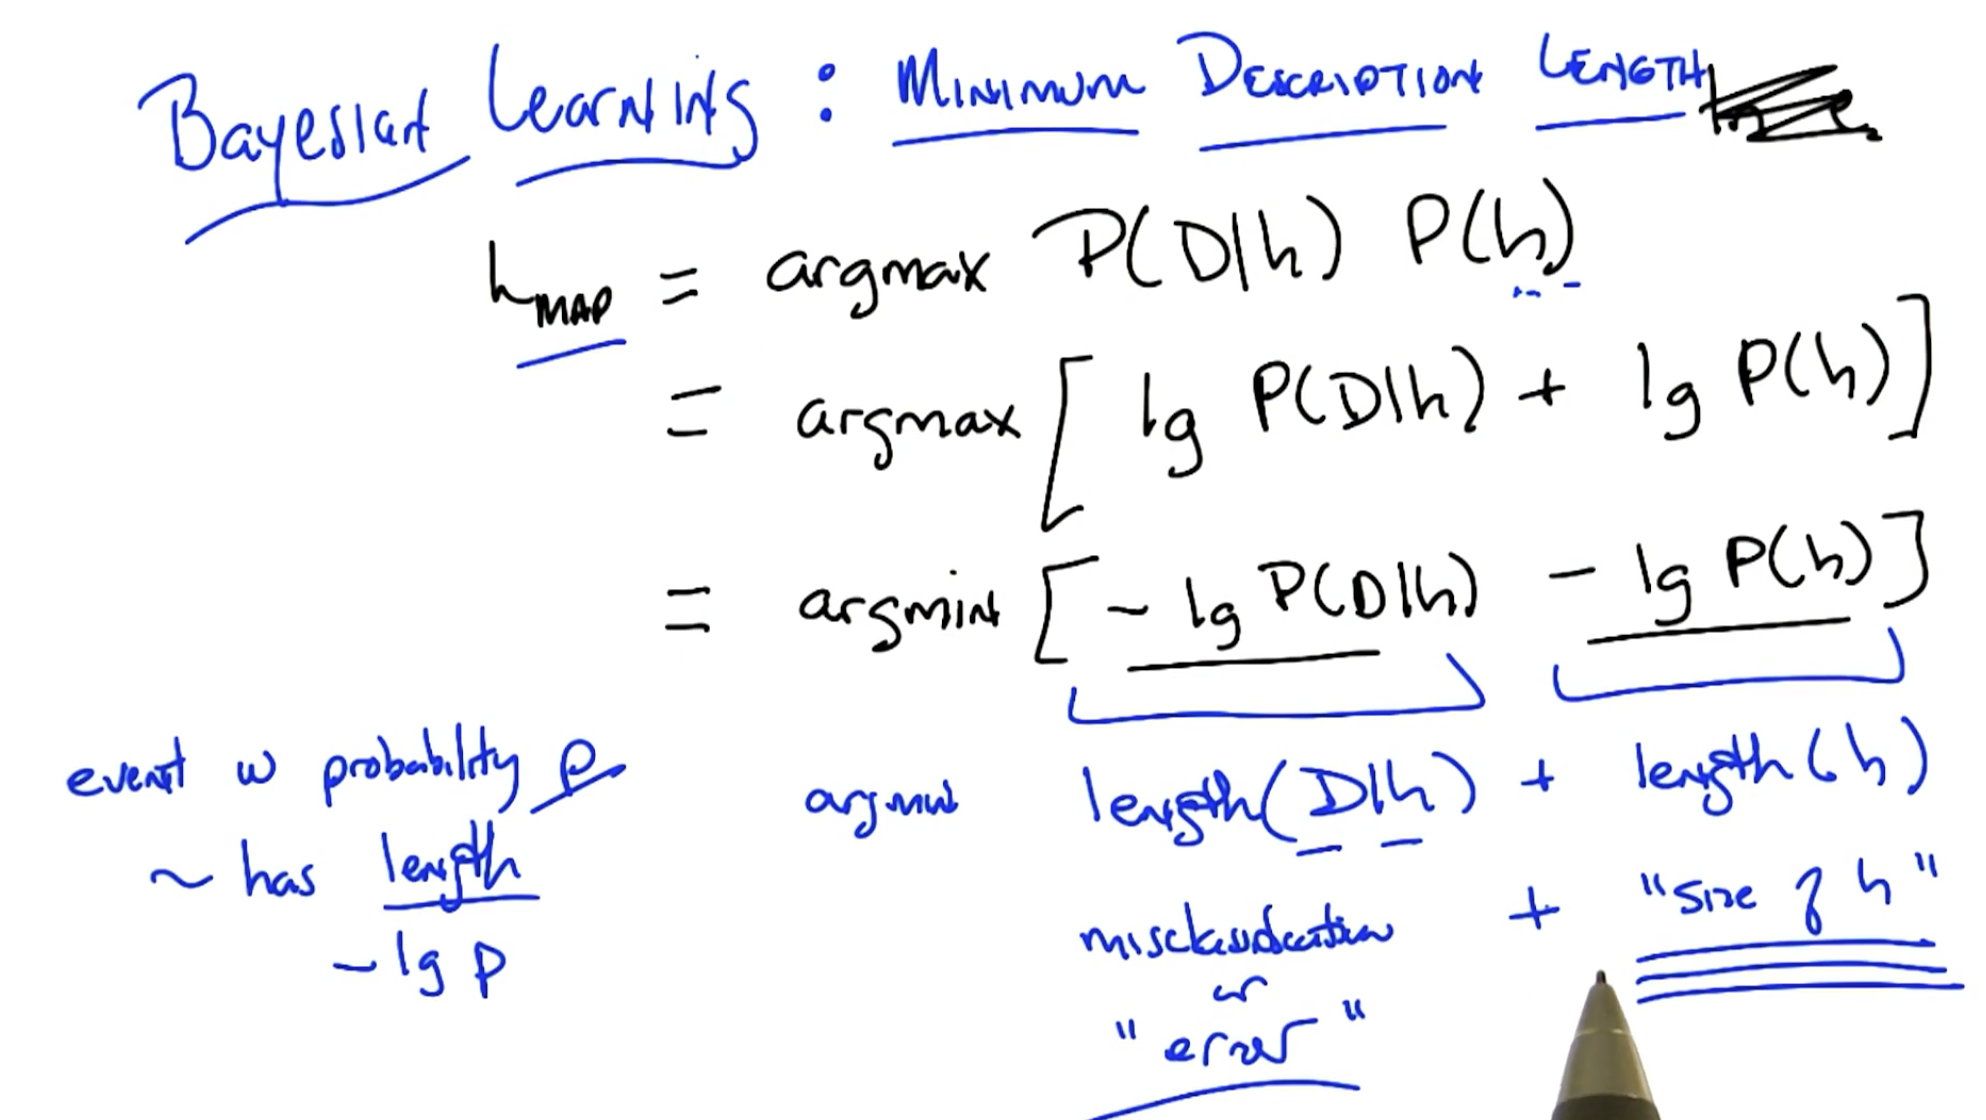 Bayesian Learning : Minimum Description Length
h_MAP = argmax P(D|h) P(h)
= argmax [ lg P(D|h) + lg P(h) ]
= argmin [ - lg P(D|h) - lg P(h) ]
event w probability p
~ has length
- lg p
argmin length(D|h) + length(h)
misclassification + "size of h"
or
"error"